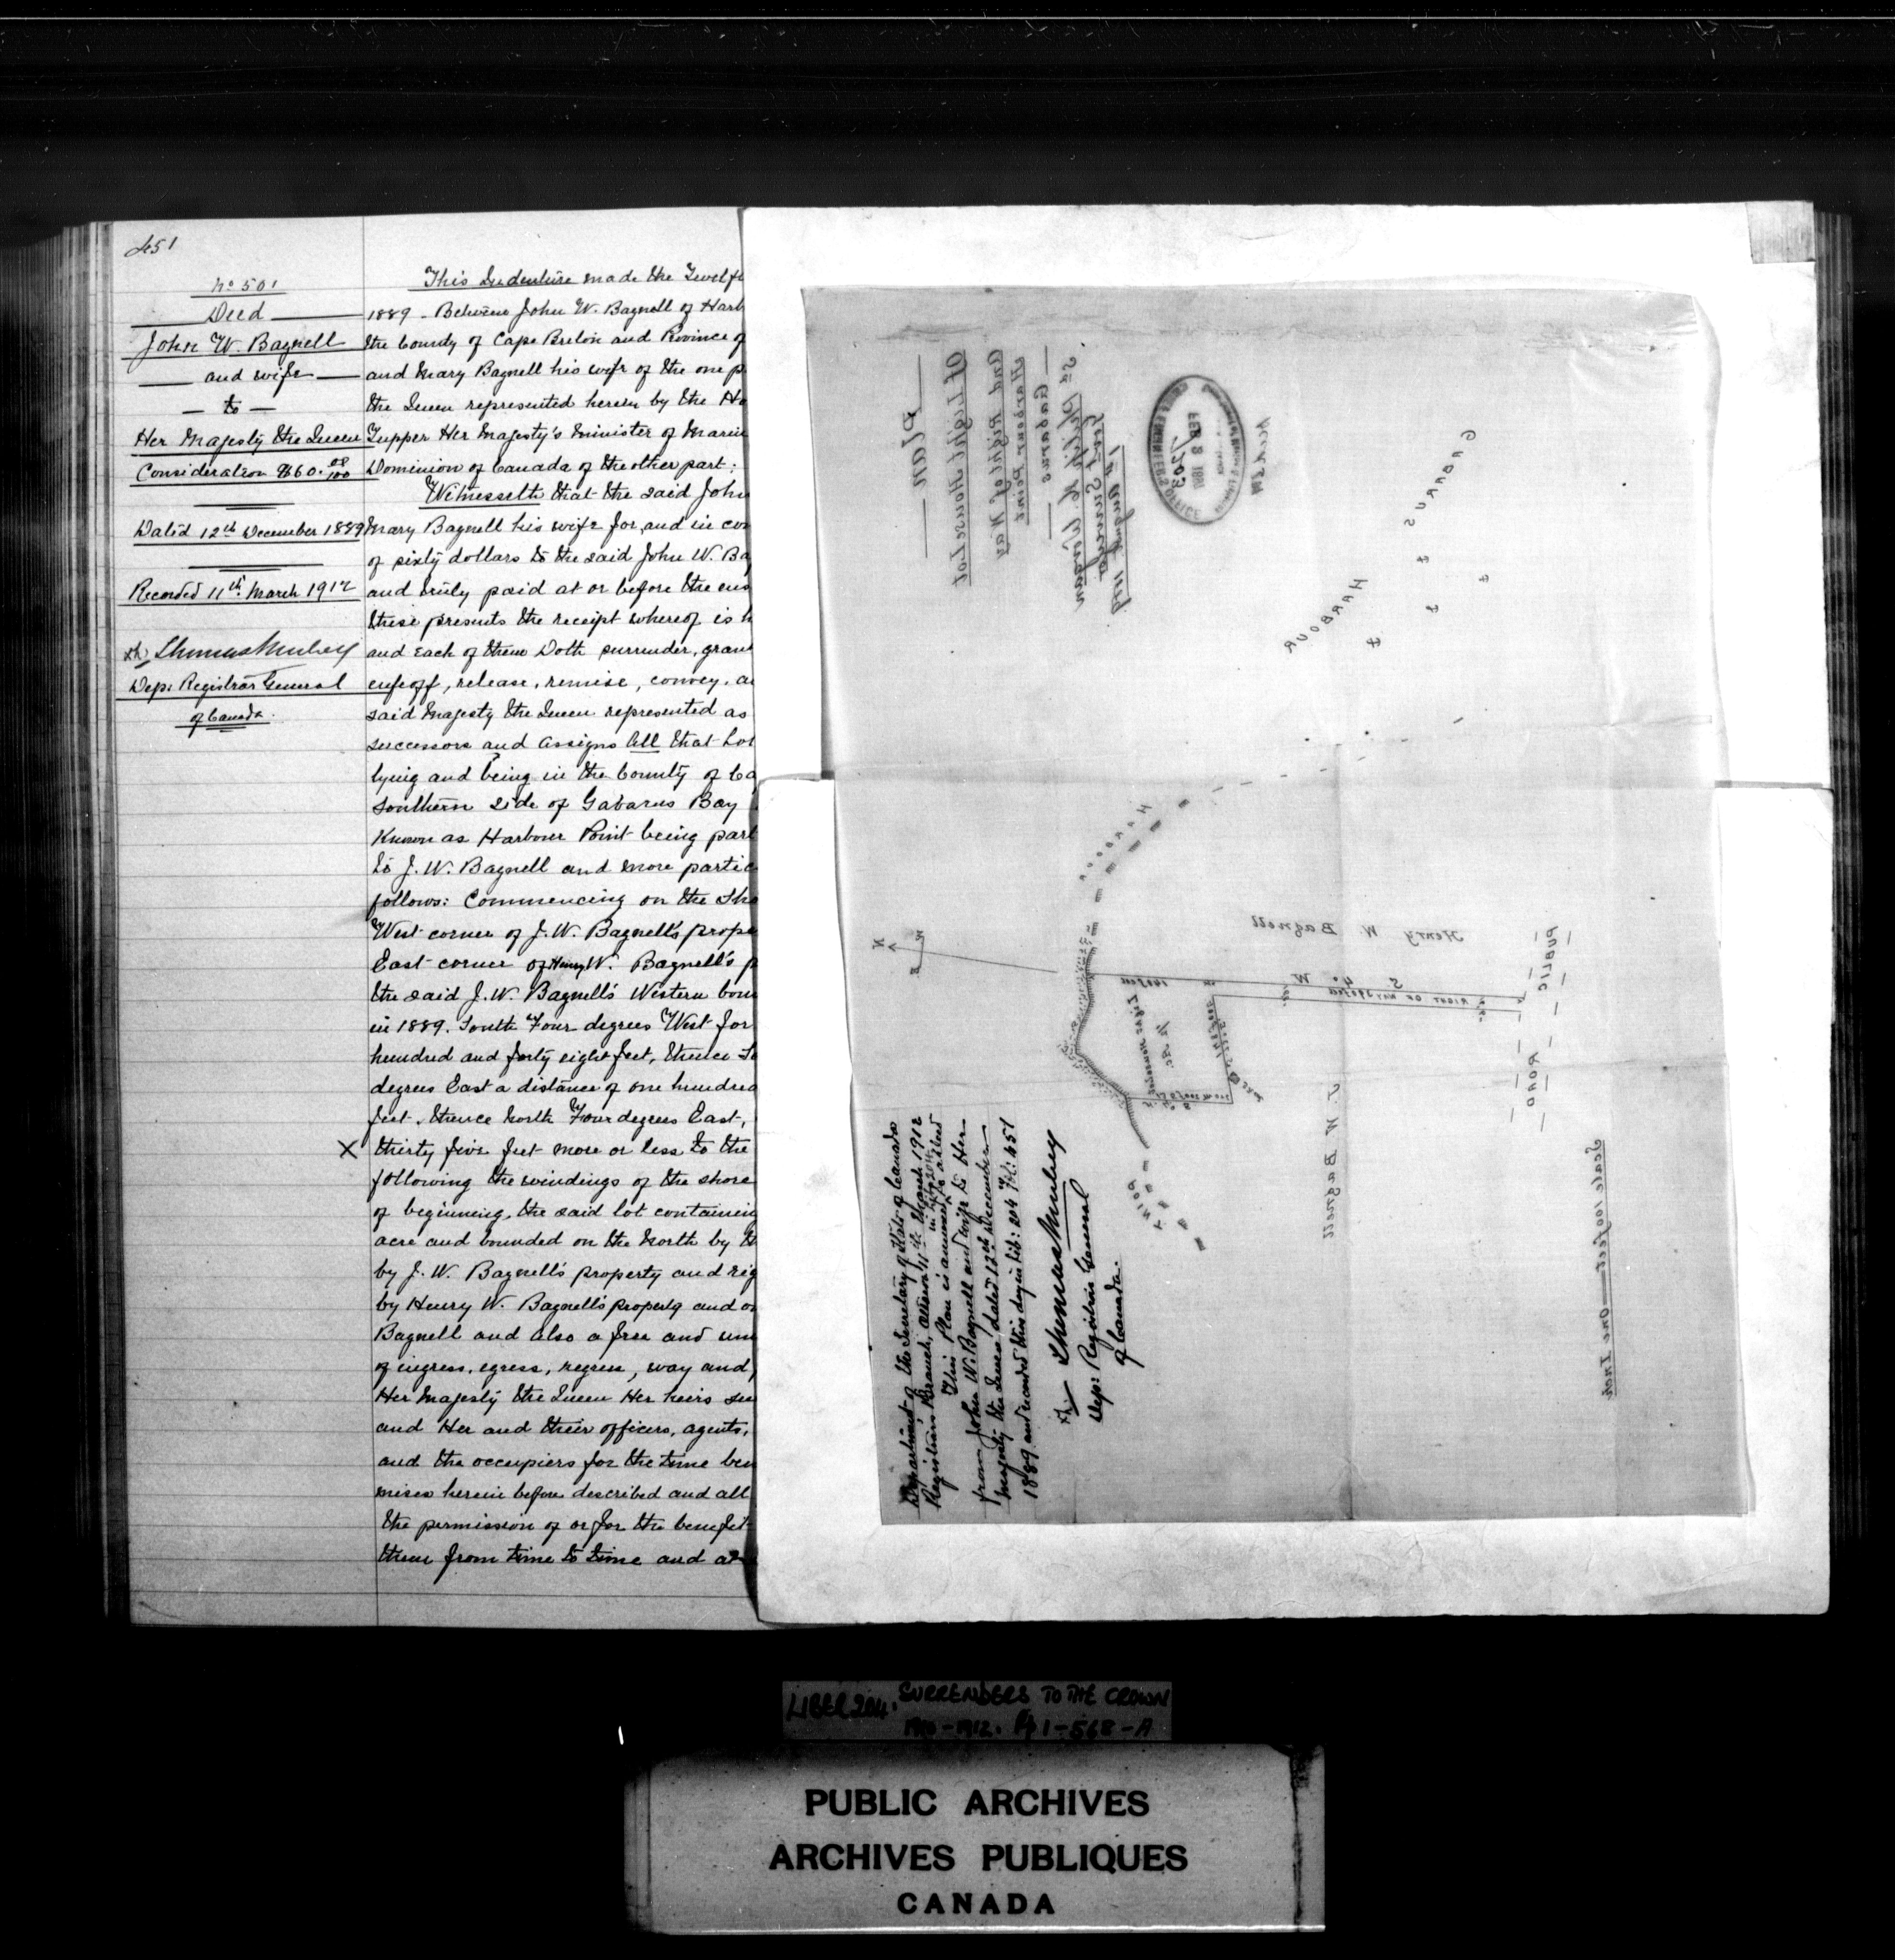 451
No 501
Deed
John W. Bagnell
and wife
to
Her Majesty the Queen
Consideration $60.00/100
Dated 12th December 1889
Recorded 11th March 1912
Thomas Mulvey
Dep: Registrar General
of Canada.
This Indenture made the Twelft
1889 - Between John W. Bagnell of Harb
the County of Cape Breton and Province of
and Mary Bagnell his wife of the one p
the Queen represented herein by the Ho
Tupper Her Majesty's Minister of Marin
Dominion of Canada of the other part:
Witnesseth that the said John
Mary Bagnell his wife for, and in con
of sixty dollars to the said John W. Bag
and truly paid at or before the ens
these presents the receipt whereof is h
and each of them Doth surrender, gran
enfeoff, release, remise, convey, a
said Majesty the Queen represented as
successors and assigns All that Lot
lying and being in the County of Ca
Southern side of Gabarus Bay
Known as Harbour Point being part
to J. W. Bagnell and more partic
follows: Commencing on the Sho
West corner of J. W. Bagnell's prope
East corner of Henry W. Bagnell's p
the said J. W. Bagnell's Western boun
in 1889. South Four degrees West for
hundred and forty eight feet, thence So
degrees East a distance of one hundred
feet, thence North Four degrees East,
X thirty five feet more or less to the
following the windings of the shore
of beginning, the said lot containing
acre and bounded on the North by th
by J. W. Bagnell's property and rig
by Henry W. Bagnell's property and on
Bagnell and also a free and unin
of ingress, egress, regress, way and
Her Majesty the Queen Her heirs suc
and Her and their officers, agents,
and the occupiers for the time bein
mises herein before described and all
the permission of or for the benefit
them from time to time and at
Plan
Of Light House Lot
And Right of Way
Harbour Point
Gabarus
GABARUS
HARBOUR
HARBOUR
N
Henry W Bagnell
S 4° W
RIGHT OF WAY
Light House Lot
PUBLIC
ROAD
J. W Bagnell
POINT
Scale 100 feet — One Inch
Department of the Secretary of State of Canada
Registrar's Branch, Ottawa 11th March 1912
This Plan is annexed to a Deed
from John W. Bagnell and wife to Her
Majesty the Queen dated 12th December
1889 and recorded this day in Lib: 204 Fol: 451
Thomas Mulvey
Dep: Registrar General
of Canada.
LIBER 204. SURRENDERS TO THE CROWN
1910-1912. Pg 1-568-A
PUBLIC ARCHIVES
ARCHIVES PUBLIQUES
CANADA